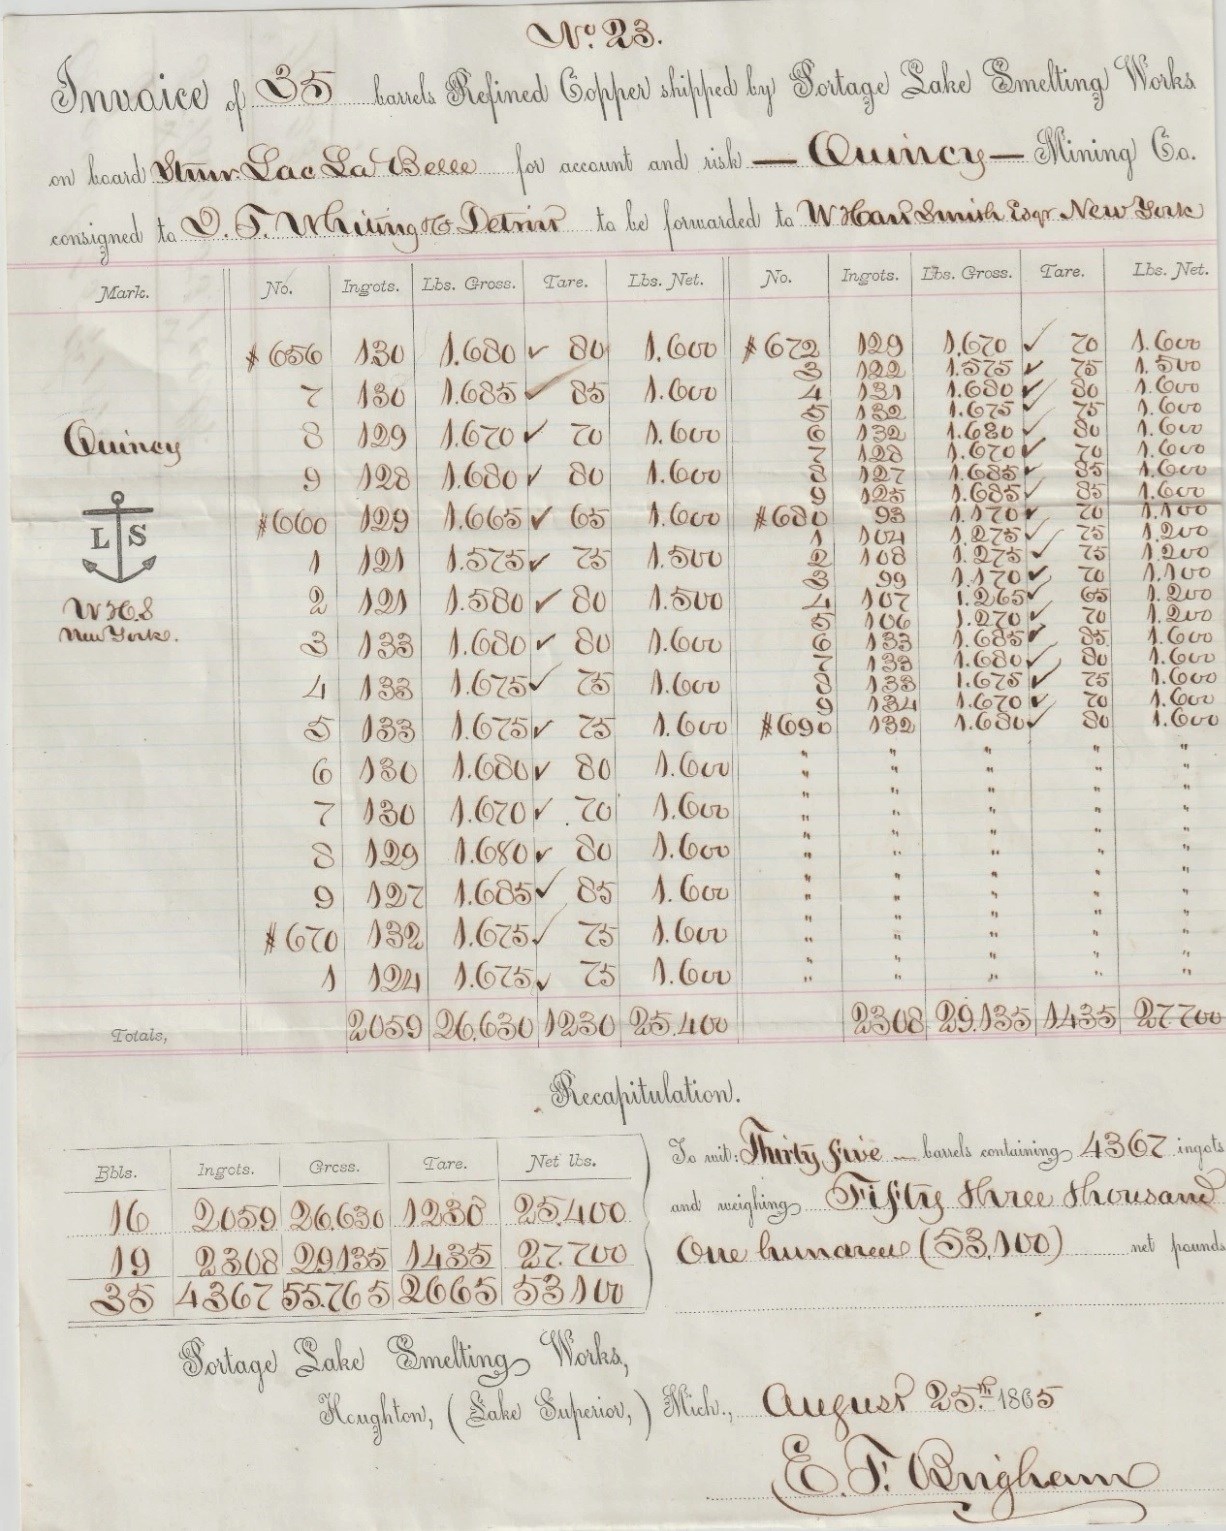 No. 23.
Invoice of 35 barrels Refined Copper shipped by Portage Lake Smelting Works
on board Stmr. Lac La Belle for account and risk — Quincy — Mining Co.
consigned to J. T. Whiting & Co Detroit to be forwarded to W Hart Smith Esqr. New York
Mark. No. Ingots. Lbs. Gross. Tare. Lbs. Net. No. Ingots. Lbs. Gross. Tare. Lbs. Net.
Quincy
L S
W H. S
New York.
# 656 130 1.680 ✓ 80 1.600
7 130 1.685 ✓ 85 1.600
8 129 1.670 ✓ 70 1.600
9 128 1.680 ✓ 80 1.600
# 660 129 1.665 ✓ 65 1.600
1 121 1.575 ✓ 75 1.500
2 121 1.580 ✓ 80 1.500
3 133 1.680 ✓ 80 1.600
4 133 1.675 ✓ 75 1.600
5 133 1.675 ✓ 75 1.600
6 130 1.680 ✓ 80 1.600
7 130 1.670 ✓ 70 1.600
8 129 1.680 ✓ 80 1.600
9 127 1.685 ✓ 85 1.600
# 670 132 1.675 ✓ 75 1.600
1 124 1.675 ✓ 75 1.600
# 672 129 1.670 ✓ 70 1.600
3 122 1.575 ✓ 75 1.500
4 131 1.680 ✓ 80 1.600
5 132 1.675 ✓ 75 1.600
6 132 1.680 ✓ 80 1.600
7 128 1.670 ✓ 70 1.600
8 127 1.685 ✓ 85 1.600
9 125 1.685 ✓ 85 1.600
# 680 93 1.170 ✓ 70 1.100
1 104 1.275 ✓ 75 1.200
2 108 1.275 ✓ 75 1.200
3 99 1.170 ✓ 70 1.100
4 107 1.265 ✓ 65 1.200
5 106 1.270 ✓ 70 1.200
6 133 1.685 ✓ 85 1.600
7 133 1.680 ✓ 80 1.600
8 133 1.675 ✓ 75 1.600
9 134 1.670 ✓ 70 1.600
# 690 132 1.680 ✓ 80 1.600
" " " " "
" " " " "
" " " " "
" " " " "
" " " " "
" " " " "
" " " " "
" " " " "
" " " " "
" " " " "
" " " " "
" " " " "
Totals, 2059 26.630 1230 25.400 2308 29.135 1435 27.700
Recapitulation.
Bbls. Ingots. Gross. Tare. Net lbs.
16 2059 26.630 1230 25.400
19 2308 29135 1435 27.700
35 4367 55.765 2665 53100
To wit: Thirty five — barrels containing 4367 ingots
and weighing Fifty three thousand
One hundred (53,100) net pounds
Portage Lake Smelting Works,
Houghton, (Lake Superior,) Mich., August 25.th 1865
E. F. Brigham